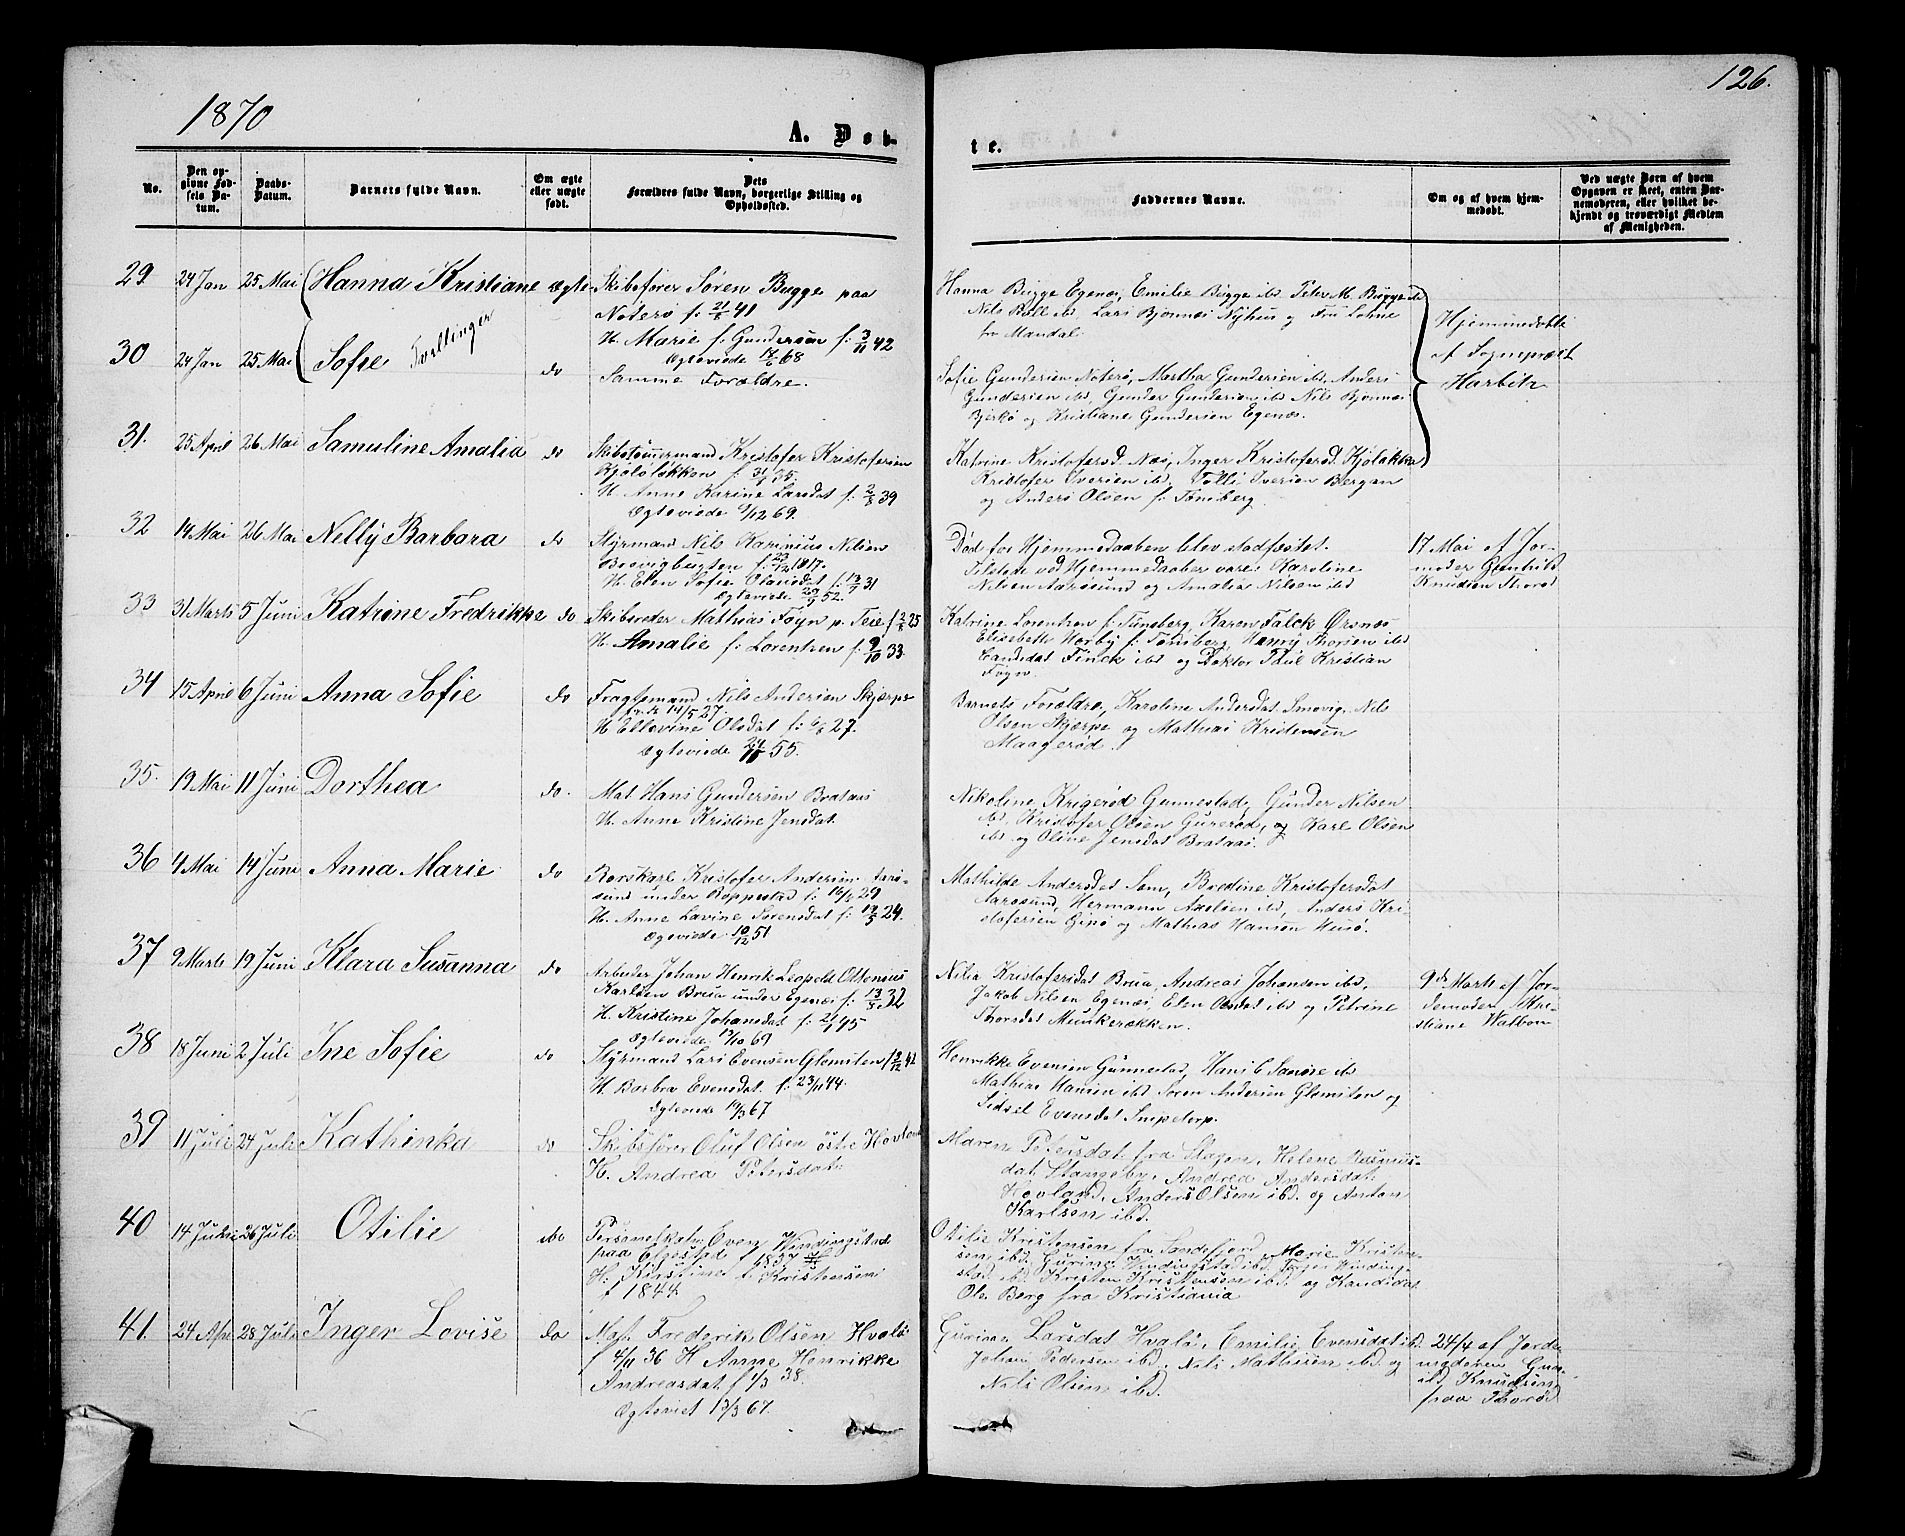 126.
1870
A. Døb-
te.
No.
Den op-
givne Fød-
sels Da-
tum.
Daabs-
Datum.
Barnets fulde Navn.
Om ægte
eller uægte
født.
Dets
Forældres fulde Navn, borgerlige Stilling og
Opholdssted.
Faddernes Navne.
Om og af hvem hjem-
medøbt.
Ved uægte Børn af hvem
Opgaven er skeet, enten Bar-
nemoderen, eller hvilket be-
kjendt og troværdigt Medlem
af Menigheden.
29. 24 Jan 25 Mai Hanna Kristiane Ægte
Skibsfører Søren Bugge paa
Nøterø f: 21/8 41
H. Marie f: Gundersen f: 3/11 42
Ægteviede 68
Hanna Bugge Egenæs, Emilie Bugge ibd Peter M. Bugge ibd
Nils Bull ibd, Lars Bjønnes Nyhus og Fru Lohne
fra Mandal
Hjemmedøbte
af Sogneprest
Harbitz
30 24 Jan 25 Mai Sofie Tvillinger do
Samme Forældre.
Sofie Gundersen Nøterø, Martha Gundersen ibd, Anders
Gundersen ibd, Gunder Gundersen ibd Nils Bjønnes
Bjerkø og Kristiane Gundersen Egenæs.
31. 25 April 26 Mai Samuline Amalia do
Skibstømmermand Kristofer Kristofersen
Kjøløløkken f: 31/1 35.
H. Anne Karine Larsdat f: 2/8 39
Ægteviede 9/12 69.
Katrine Kristofersd. Næs, Inger Kristofersd. Kjøløkka
Kristofer Iversen ibd, Tollef Iversen Bergan
og Anders Olsen f: Tønsberg
32 14 Mai 26 Mai Nelly Barbara do
Styrmand Nils Karinius Nilsen
Brevigbugten f: 23/12 1817.
H. Elen Sofie Olavsdat f: 13/7 31
Ægteviede 29/9 52.
Død før Hjemmedaaben blev stadfæstet.
Tilstede ved Hjemmedaaben vare: Karoline
Nilsen Aarøsund og Amalia Nilsen ibd
17 Mai af Jor-
moder Gunhild
Knudsen Thorød
33 31 Marts 5 Juni Katrine Fredrikke do
Skibsreder Mathias Føyn p. Teie f 2/8 25
H. Amalie f: Lorentzen f: 9/10 33.
Katrine Lorentzen f: Tønsberg, Karen Falck Ørsnæs
Elisabeth Horby f: Tønsberg, Henry Thorsen ibd
Candidat Finck ibd og Doktor Poul Kristian
Føyn.
34 15 April 6 Juni Anna Sofie do
Fragtemand Nils Andersen Skjerpe
14/5 27.
H Ellevine Olsdat f: 6/8 27.
Ægteviede 55.
Barnets Forældre, Karoline Andersdat Smovig, Nils
Olsen Skjerpe og Mathias Kristensen
Maagerød.
35. 19 Mai 11 Juni Dorthea do.
Mat. Hans Gundersen Brataas
H. Anne Kristine Jensdat.
Nikoline Krigerød Gunnestad, Gunder Nilsen
ibd, Kristofer Olsen Gurerød, og Karl Olsen
ibd og Oline Jensdat Brataas.
36 4 Mai 14 Juni Anna Marie do
Rorskarl Kristofer Andersen Aarø-
sund under Roppestad f: 16/2 29
H. Anne Lavine Sørensdat f: 24.
Ægteviede 10/12 51
Mathilde Andersdat Sem, Bredine Kristofersdat
Aarøsund, Hermann Axelsen ibd, Anders Kri-
stofersen Gipø og Mathias Hansen Husø.
37 9 Marts 19 Juni Klara Susanna do
Arbeider Johan Henrik Leopold Ottonius
Karlsen Brua under Egenæs f: 13/8 32
H. Kristine Johansdat f: 21/1 45
Ægteviede 13/10 69
Nilia Kristofersdat Brua, Andreas Johansen ibd,
Jakob Nilsen Egenæs, Elen Olsdat ibd og Petrine
Thorsdat Munkerøkken.
9de Marts af Jor-
demoder Kri-
stiane Watbon
38 18 Juni 2 Juli Ine Sofie do
Styrmand Lars Evensen Glomsten f 9/12 42
H. Barbra Evensdat f: 23/11 44.
Ægteviede 19/3 67
Henrikke Evensen Gunnestad, Hans C Sanøse ibd
Mathias Hansen ibd Søren Andersen Glomsten og
Sidsel Evensdat Smpetorp.
39 11 Juli 24 Juli Kathinka do
Skibsfører Oluf Olsen østre Hovland
H. Andrea Petersdat:
Maren Petersdat fra Skagen, Helene Rasmus-
dat. Stangeby, Andrea Andersdat.
Hovland, Anders Olsen ibd. og Anton
Karlsen ibd.
40 14 Juni 26 Juli Otilie do
Even Vindingstad
paa Elgestad f 1837
H. Kirstine f Kristensen
f 1844
Otilie Kristensen fra Sandefjord, Marie Kristen-
sen ibd. Gurine Vindingstad ibd, Vinding-
stad ibd Kristen Kristensen ibd. og Kandidat
Ole Berg fra Kristiania
41. 24 Apr 28 Juli Inger Lovise do
Mat. Frederik Olsen Hvalø
f 4/11 36 H Anne Henrikke
Andreasdat f 1/3 38.
Ægteviet 13/3 67.
Gurine Larsdat Hvalø, Emilie Evensdat ibd.
Johan Pedersen ibd, Nils Mathisen ibd og
Nils Olsen ibd.
24/4 af Jorde-
moderen Gun-
ild Knudsen
fraa Thorød